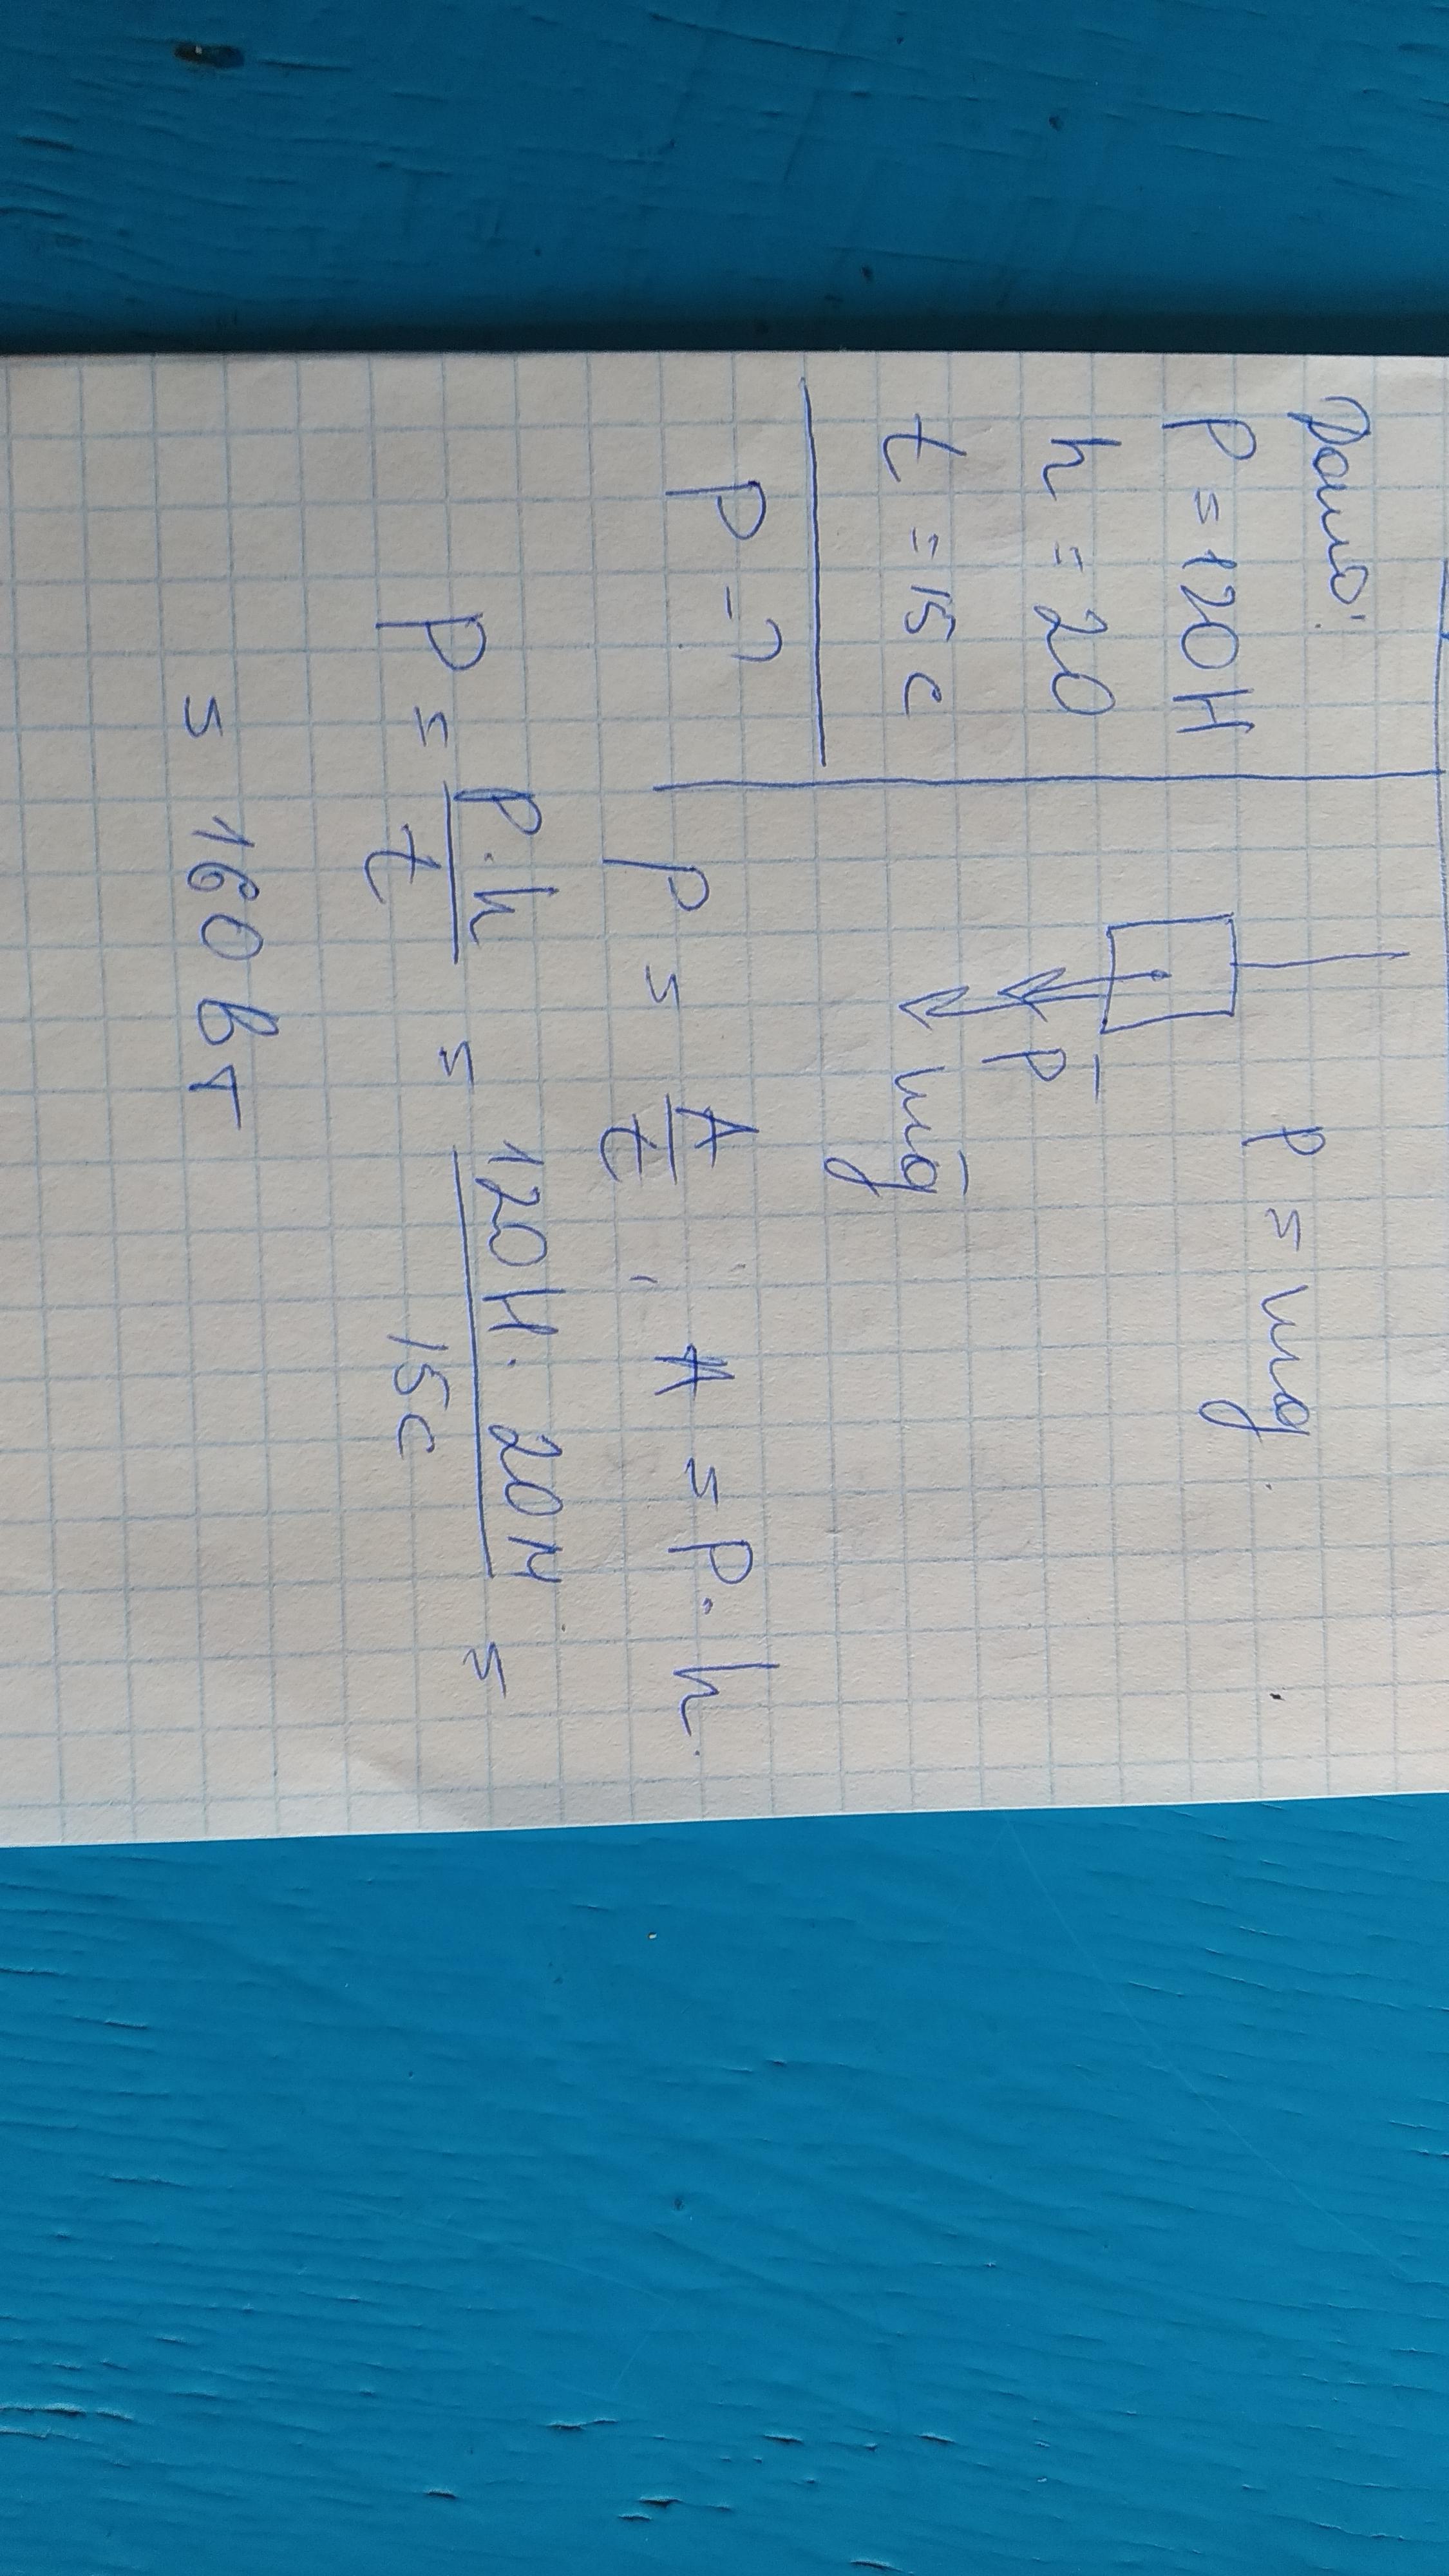 Дано:
P = 120Н
h = 20
t = 15 с
P - ?
P = mg
P
mg
P = A/t , A = P · h.
P = P·h/t = 120Н · 20м/15с =
= 160 Вт